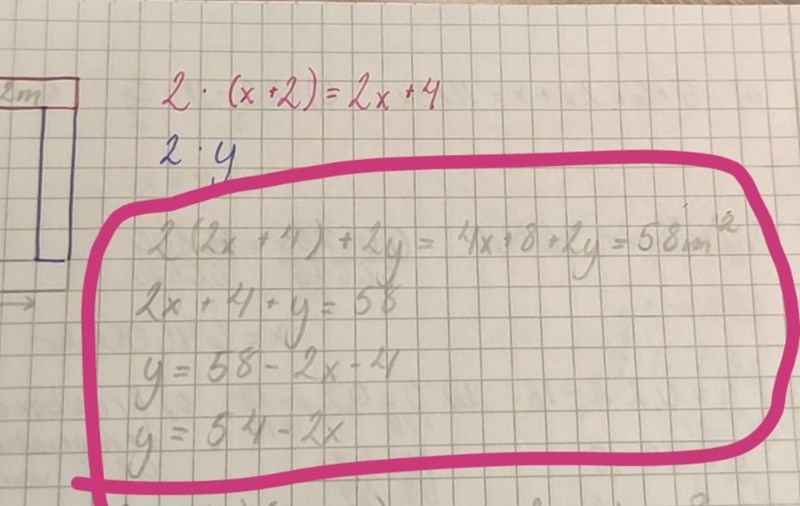 2m
2 · (x+2) = 2x+4
2 · y
2(2x+4)+2y = 4x+8+2y = 58m²
2x+4+y = 58
y = 58-2x-4
y = 54-2x